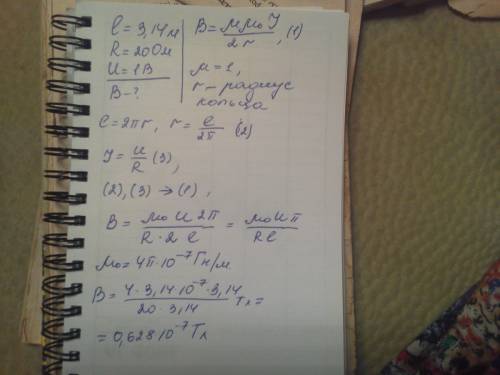 l = 3,14 м
R = 20 Ом
U = 1 В
B - ?
B = μμ₀J / 2r , (1)
μ = 1,
r - радиус
кольца
l = 2πr, r = l / 2π (2)
J = U / R (3),
(2), (3) → (1) ,
B = μ₀ U 2π / R · 2 l = μ₀ U π / R l
μ₀ = 4π · 10⁻⁷ Гн/м
B = 4 · 3,14 · 10⁻⁷ · 3,14 / 20 · 3,14 Тл =
= 0,628 · 10⁻⁷ Тл